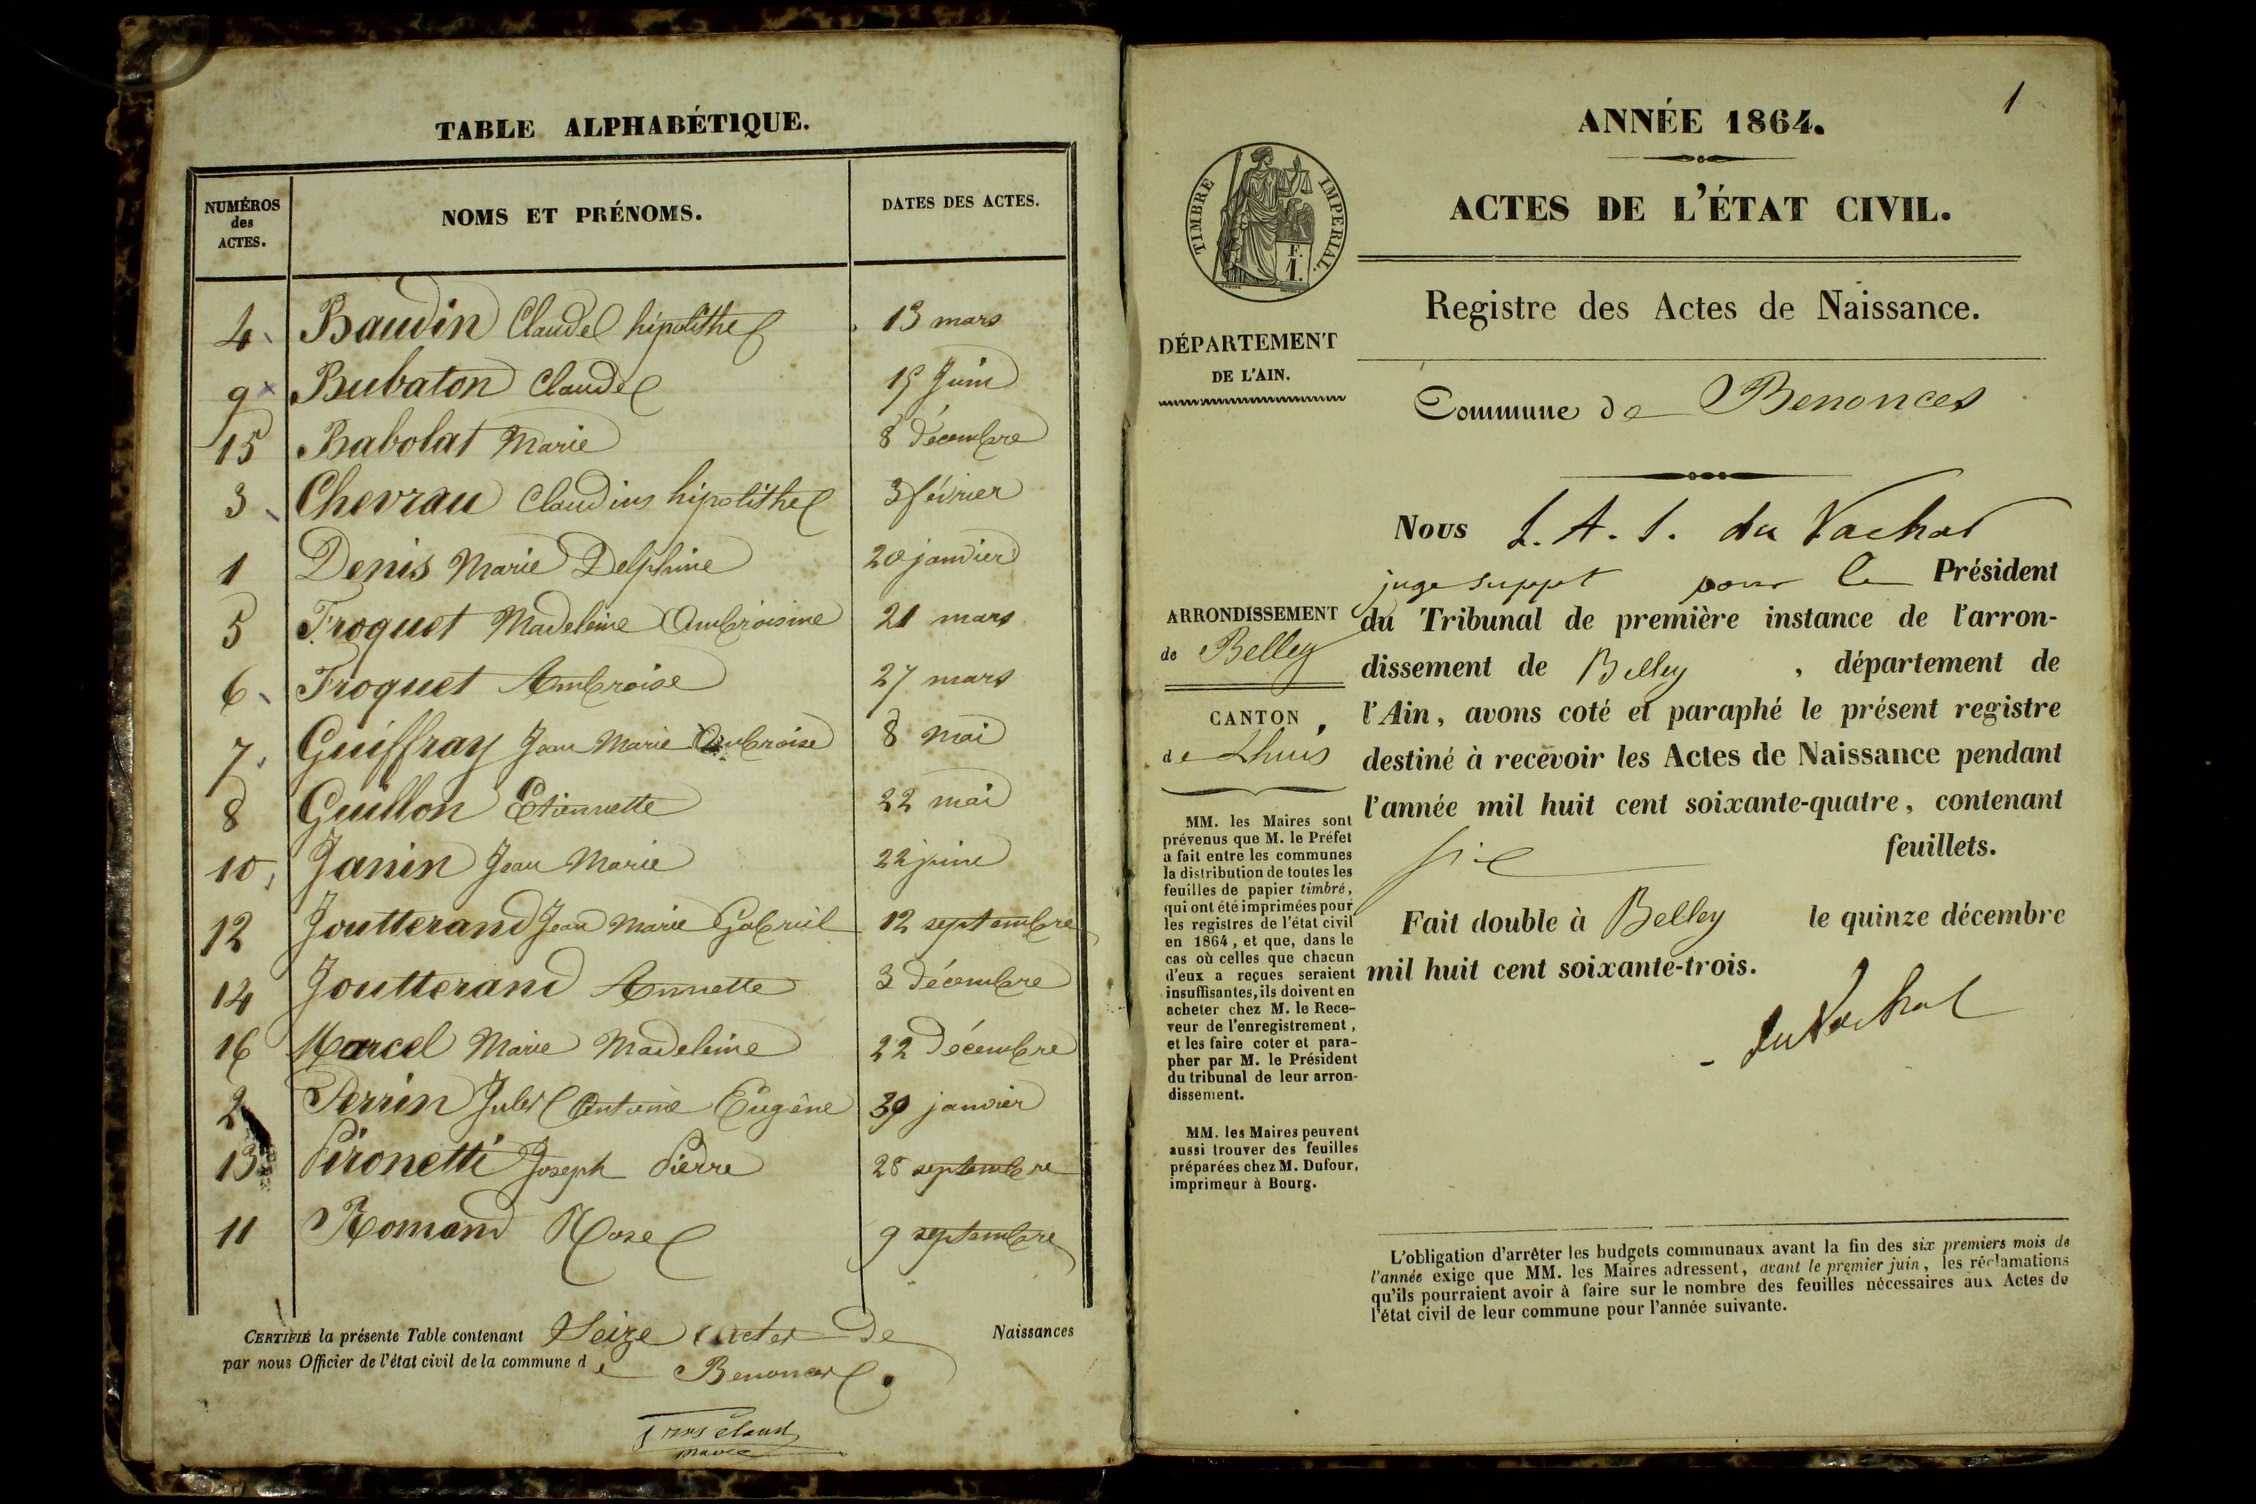 TABLE ALPHABÉTIQUE.
NUMÉROS des ACTES.
NOMS ET PRÉNOMS.
DATES DES ACTES.
4 Baudin Claude hipolithe 13 mars
9 Bubaton Claude 15 Juin
15 Babolat Marie 8 décembre
3 Chevrau Claudius hipolithe 3 février
1 Denis Marie Delphine 20 janvier
5 Froquet Madeleine Ambroisine 21 mars
6 Froquet Ambroise 27 mars
7 Guiffray Jean Marie Ambroise 8 mai
8 Guillon Etiennette 22 mai
10 Janin Jean Marie 22 juin
12 Joutterand Jean Marie Gabriel 12 septembre
14 Joutterand Annette 3 décembre
16 Marcel Marie Madeleine 22 Décembre
2 Perrin Jules Antoine Eugène 30 janvier
13 Pironetti Joseph Pierre 28 septembre
11 Romand Rose 9 septembre
CERTIFIÉ la présente Table contenant Seize actes de Naissances
par nous Officier de l'état civil de la commune de Benonces
maire
1
ANNÉE 1864.
ACTES DE L'ÉTAT CIVIL.
TIMBRE IMPERIAL.
F.
1.
Registre des Actes de Naissance.
DÉPARTEMENT
DE L'AIN.
Commune de Benonces
Nous L. A. S. du Vachat
juge suppt pour le Président
du Tribunal de première instance de l'arron-
dissement de Belley, département de
l'Ain, avons coté et paraphé le présent registre
destiné à recevoir les Actes de Naissance pendant
l'année mil huit cent soixante-quatre, contenant
six feuillets.
Fait double à Belley le quinze décembre
mil huit cent soixante-trois.
du Vachat
ARRONDISSEMENT
de Belley
CANTON
de Lhuis
MM. les Maires sont
prévenus que M. le Préfet
a fait entre les communes
la distribution de toutes les
feuilles de papier timbré,
qui ont été imprimées pour
les registres de l'état civil
en 1864, et que, dans le
cas où celles que chacun
d'eux a reçues seraient
insuffisantes, ils doivent en
acheter chez M. le Rece-
veur de l'enregistrement,
et les faire coter et para-
pher par M. le Président
du tribunal de leur arron-
dissement.
MM. les Maires peuvent
aussi trouver des feuilles
préparées chez M. Dufour,
imprimeur à Bourg.
L'obligation d'arrêter les budgets communaux avant la fin des six premiers mois de
l'année exige que MM. les Maires adressent, avant le premier juin, les réclamations
qu'ils pourraient avoir à faire sur le nombre des feuilles nécessaires aux Actes de
l'état civil de leur commune pour l'année suivante.